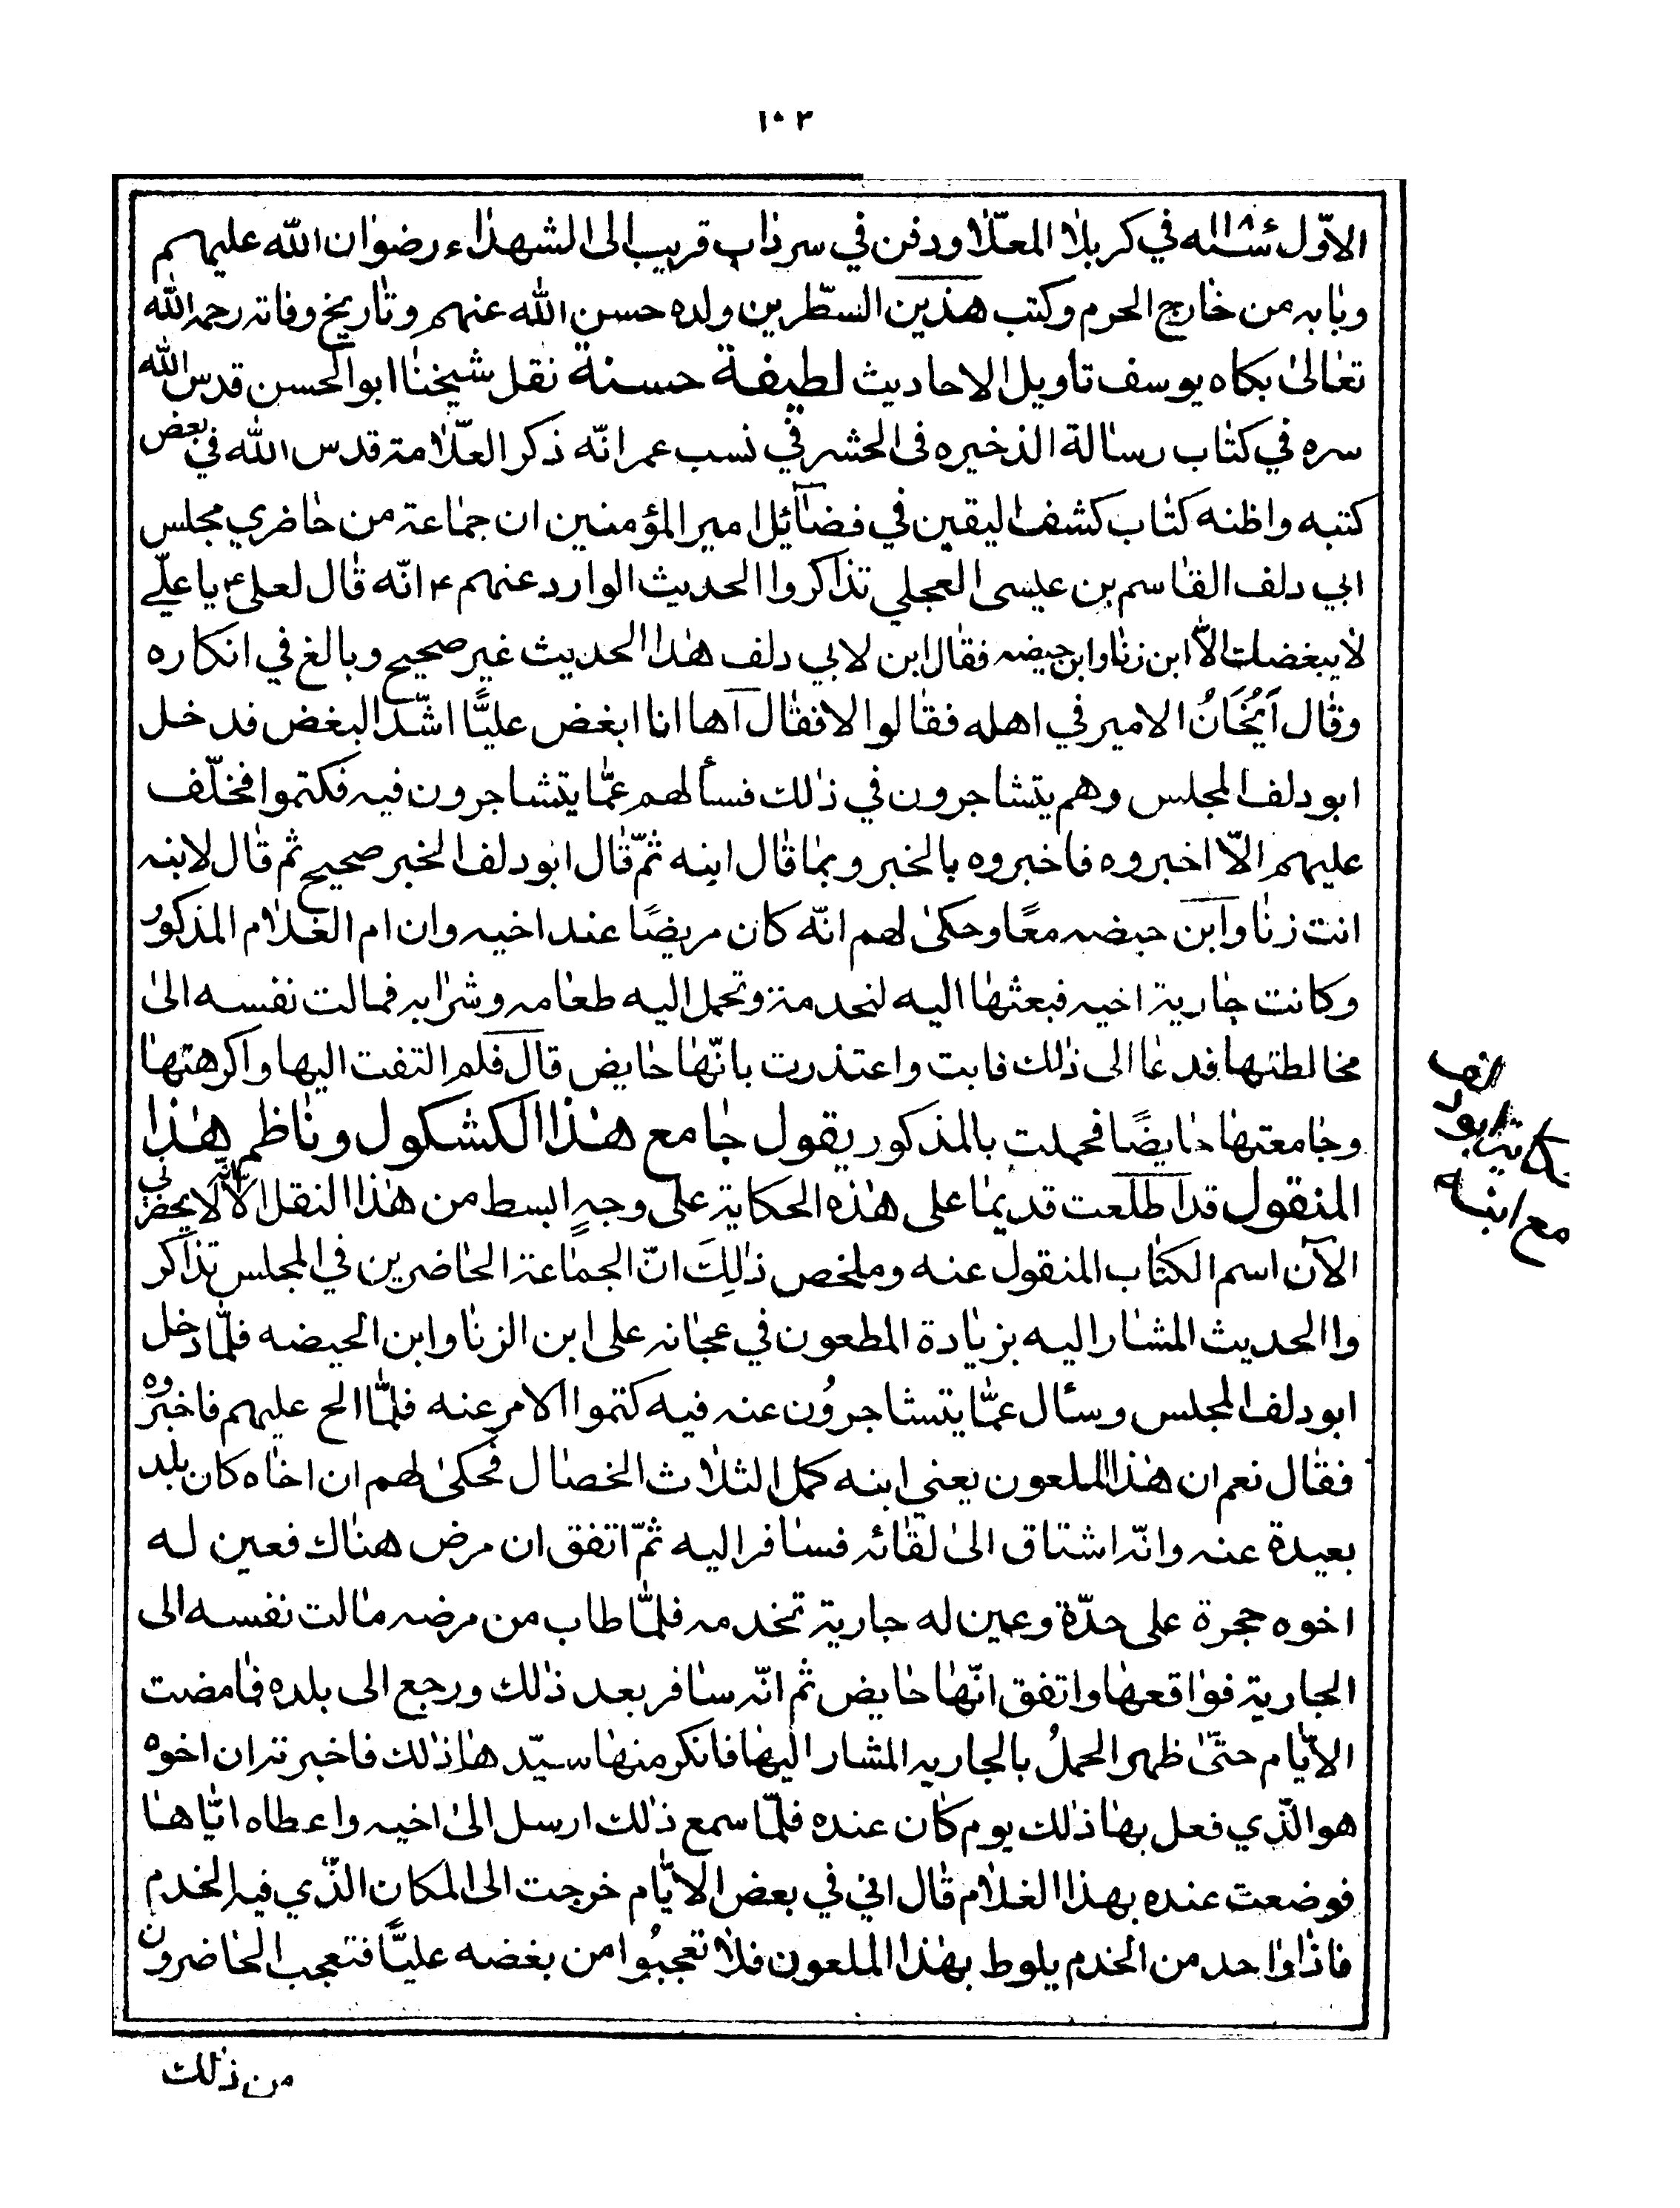 ١٠٣
الاوّل في كربلا المعلّا ودفن في سرداب قريب الى الشهداء رضوان الله عليهم
وبابه من خارج الحرم وكتب هذين السطرين ولده حسن الله عنهم وتاريخ وفاته رحمه الله
تعالى بكاه يوسف تاويل الاحاديث لطيفة حسنة نقل شيخنا ابوالحسن قدس الله
سره في كتاب رسالة الذخيره فى الحشر في نسب عمر انّه ذكر العلّامة قدس الله في بعض
كتبه واظنه كتاب كشف اليقين في فضآئل امير المؤمنين ان جماعة من حاضري مجلس
ابي دلف القاسم بن عيسى العجلي تذاكروا الحديث الوارد عنهم ٤ انّه قال لعلي ٤ يا علّي
لا يبغضك الّا ابن زنا وابن حيضه فقال ابن لابي دلف هذا الحديث غير صحيح وبالغ في انكاره
وقال اَيُخَانُ الامير في اهله فقالوا لا فقال آها انا ابغض عليًّا اشّد البغض فدخل
ابودلف المجلس وهم يتشاجرون في ذلك فسألهم عمّا يتشاجرون فيه فكتموا فخلّف
عليهم الّا اخبروه فاخبروه بالخبر وبما قال ابنه ثمّ قال ابودلف الخبر صحيح ثم قال لابنه
انت زنا وابن حيضه معًا وحكى لهم انّه كان مريضًا عند اخيه وان ام الغلام المذكور
وكانت جارية اخيه فبعثها اليه لنخدمة وتحمل اليه طعامه وشرابه فمالت نفسه الى
مخالطتها فدعا الى ذلك فابت واعتذرت بانّها حايض قال فلم التفت اليها واكرهتها
وجامعتها حايضًا فحملت بالمذكور يقول جامع هذا الكشكول وناظم هذا
المنقول قد اطلعت قديما على هذه الحكاية على وجهٍ ابسط من هذا النقل الّا انّه لا يحضرني
الآن اسم الكتاب المنقول عنه وملخص ذلِكَ انّ الجماعة الحاضرين في المجلس تذاكر
وا الحديث المشار اليه بزيادة المطعون في عجانه على ابن الزنا وابن الحيضه فلمّا دخل
ابودلف المجلس وسأل عمّا يتشاجروُن عنه فيه كتموا الامر عنه فلمّا الح عليهم فاخبروه
فقال نعم ان هذا الملعون يعني ابنه كمل الثلاث الخصال فحكى لهم ان اخاه كان بلد
بعيدة عنه وانّه اشتاق الى لقائه فسافر اليه ثمّ اتفق ان مرض هناك فعين له
اخوه حجرة على حدّة وعين له جارية تخدمه فلمّا طاب من مرضه مالت نفسه الى
الجارية فواقعها واتفق انّها حايض ثم انّه سافر بعد ذلك ورجع الى بلده فامضت
الايّام حتّى ظهر الحملُ بالجاريه المشار اليها فانكر منها سيّدها ذلك فاخبرته ان اخوه
هو الّذي فعل بها ذلك يوم كان عنده فلمّا سمع ذلك ارسل الى اخيه واعطاه ايّاها
فوضعت عنده بهذا الغلام قال اني في بعض الايّام خرجت الى المكان الذّي فيه الخدم
فاذا واحد من الخدم يلوط بهذا الملعون فلا تعجبُوا من بغضه عليًّا فتعجب الحاضرون
من ذلك
حكاية ابودلف
مع ابنه